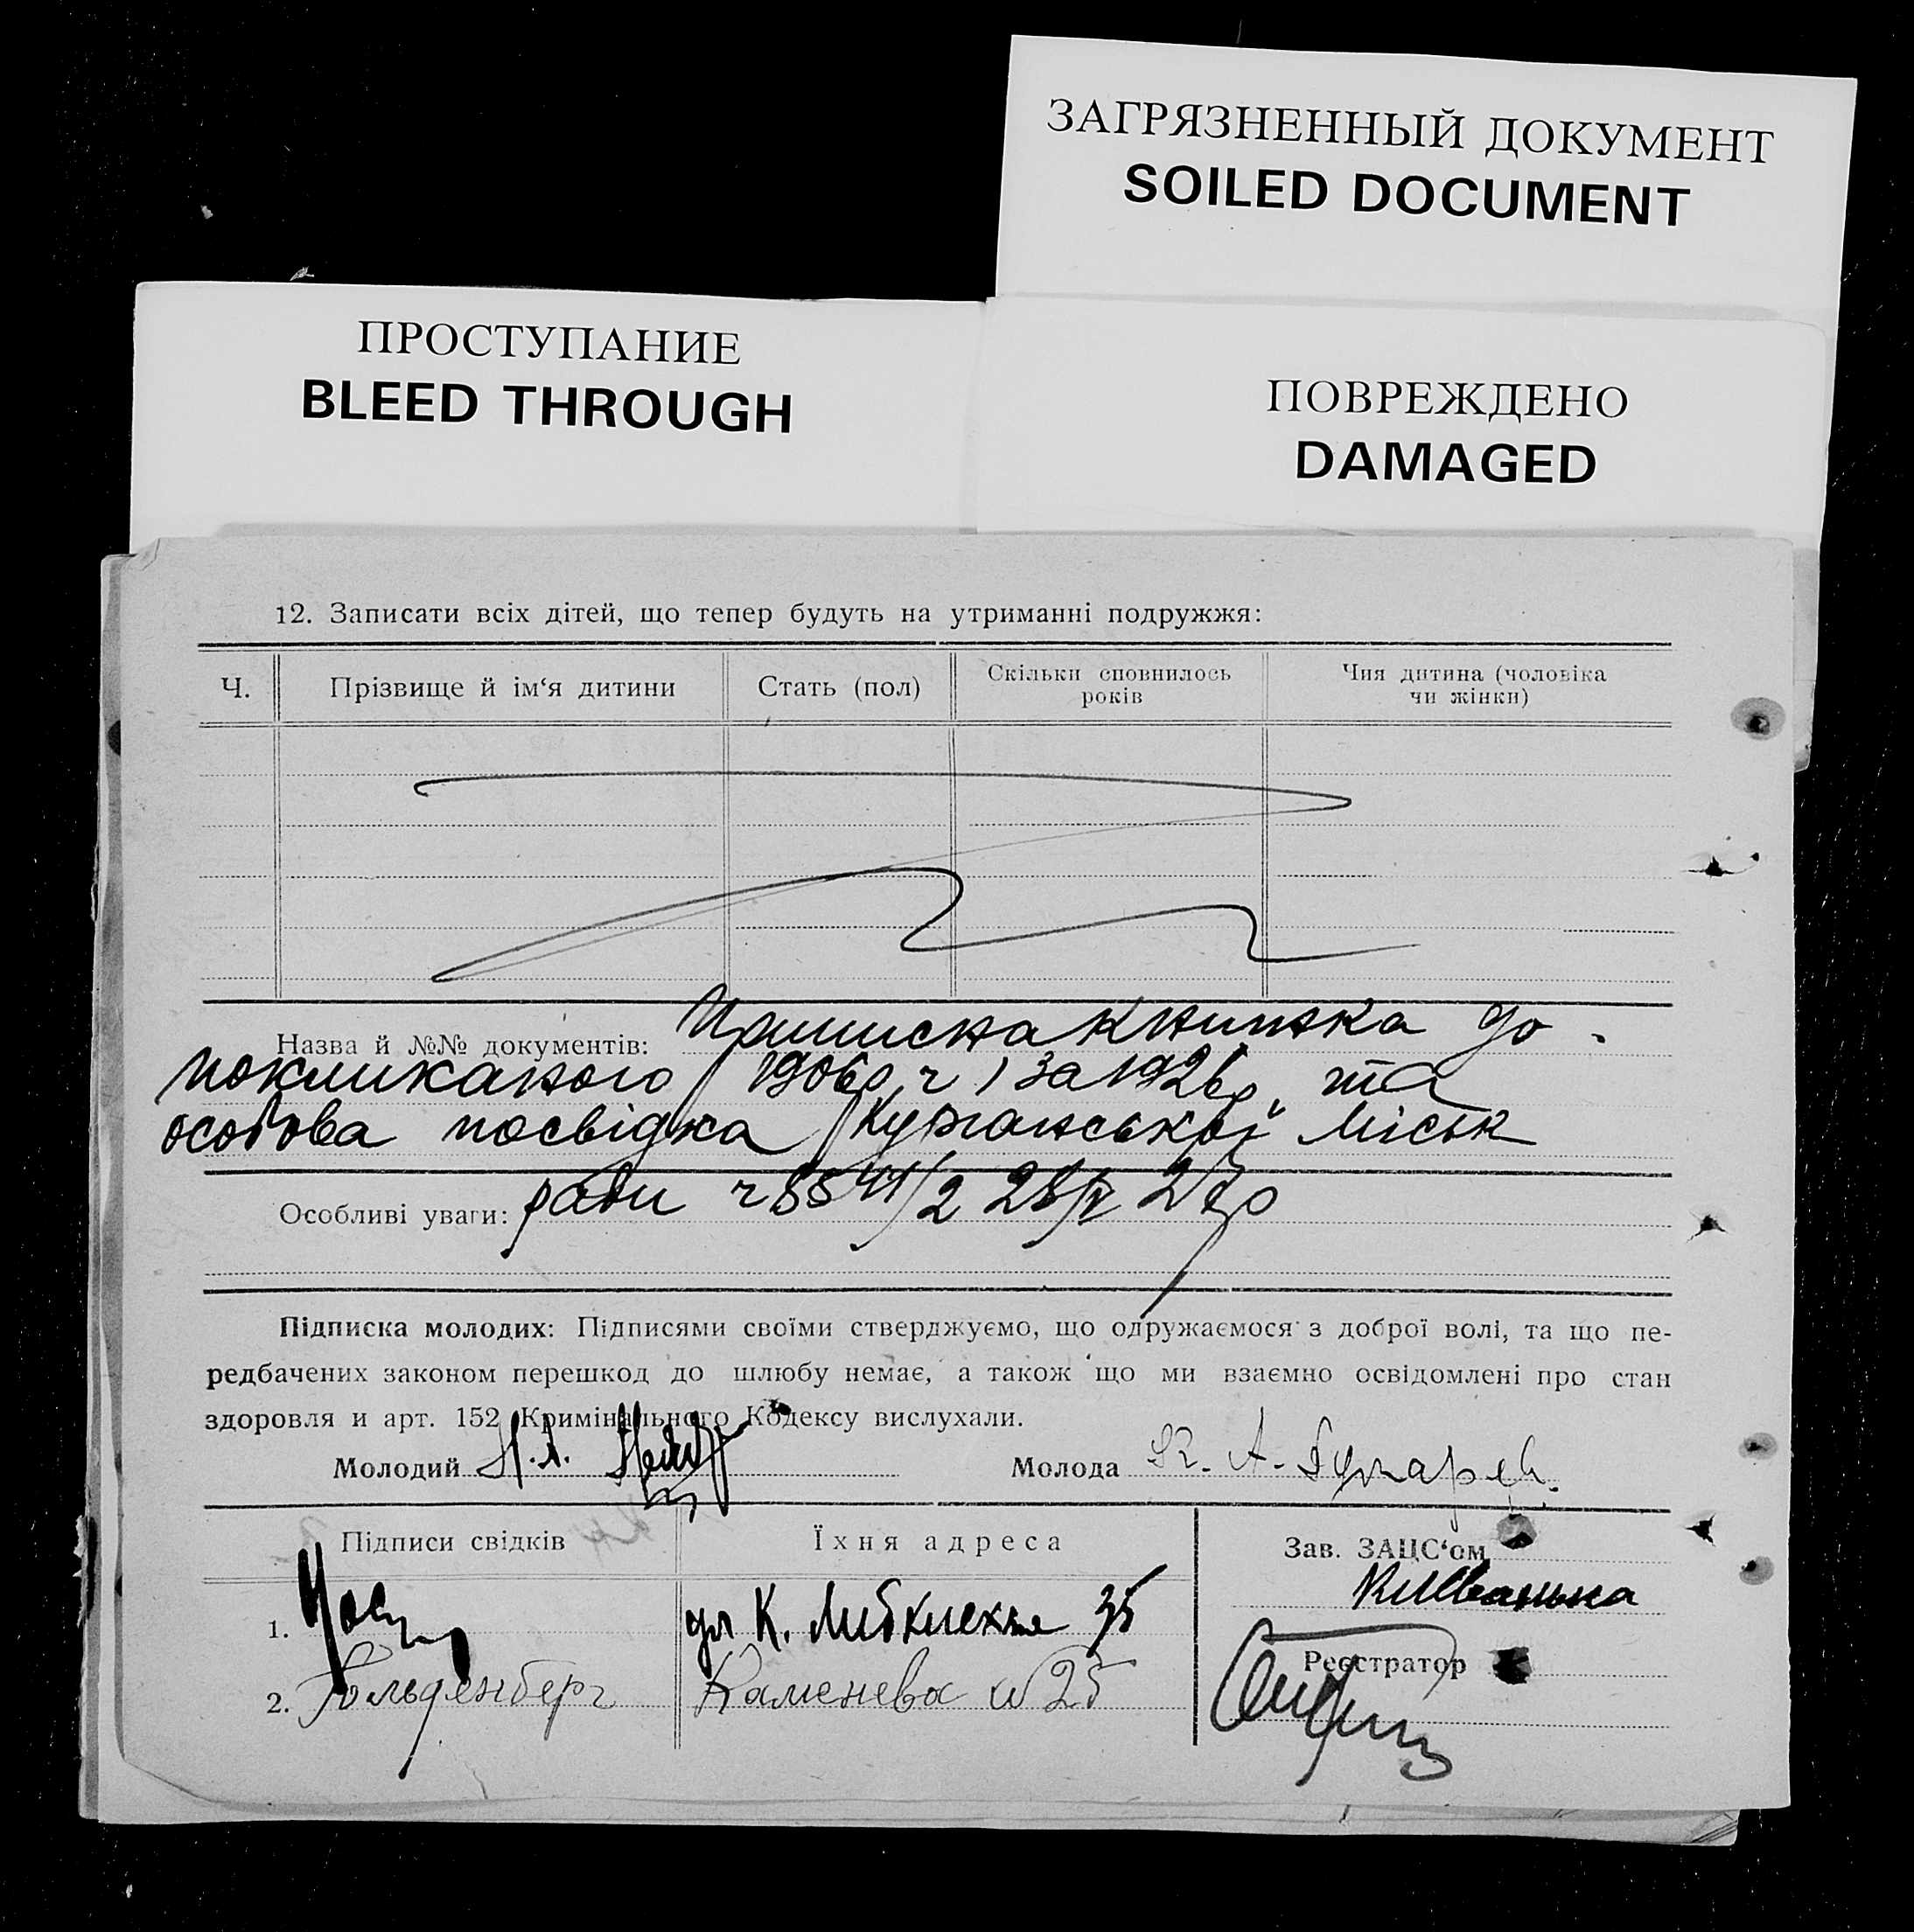 ЗАГРЯЗНЕННЫЙ ДОКУМЕНТ
SOILED DOCUMENT
ПРОСТУПАНИЕ
BLEED THROUGH
ПОВРЕЖДЕНО
DAMAGED
12. Записати всіх дітей, що тепер будуть на утриманні подружжя:
Ч.
Прізвище й ім‘я дитини
Стать (пол)
Скільки сповнилось
років
Чия дитина (чоловіка
чи жінки)
Назва й №№ документів: Приписна книжка до
покликаного 1906 р. ч 1 за 1926 р. та
особова посвідка міськ
Особливі уваги: ради
Підписка молодих: Підписями своїми стверджуємо, що одружаємося з доброї волі, та що пе-
редбачених законом перешкод до шлюбу немає, а також що ми взаємно освідомлені про стан
здоровля и арт. 152 Кримінального Кодексу вислухали.
Молодий Н. А.
Молода К. А.
Підписи свідків
Їхня адреса
Зав. ЗАЦС‘ом
1.
ул К. Либкнехта 35
Реєстратор
2. Гольденберг
Каменева 25